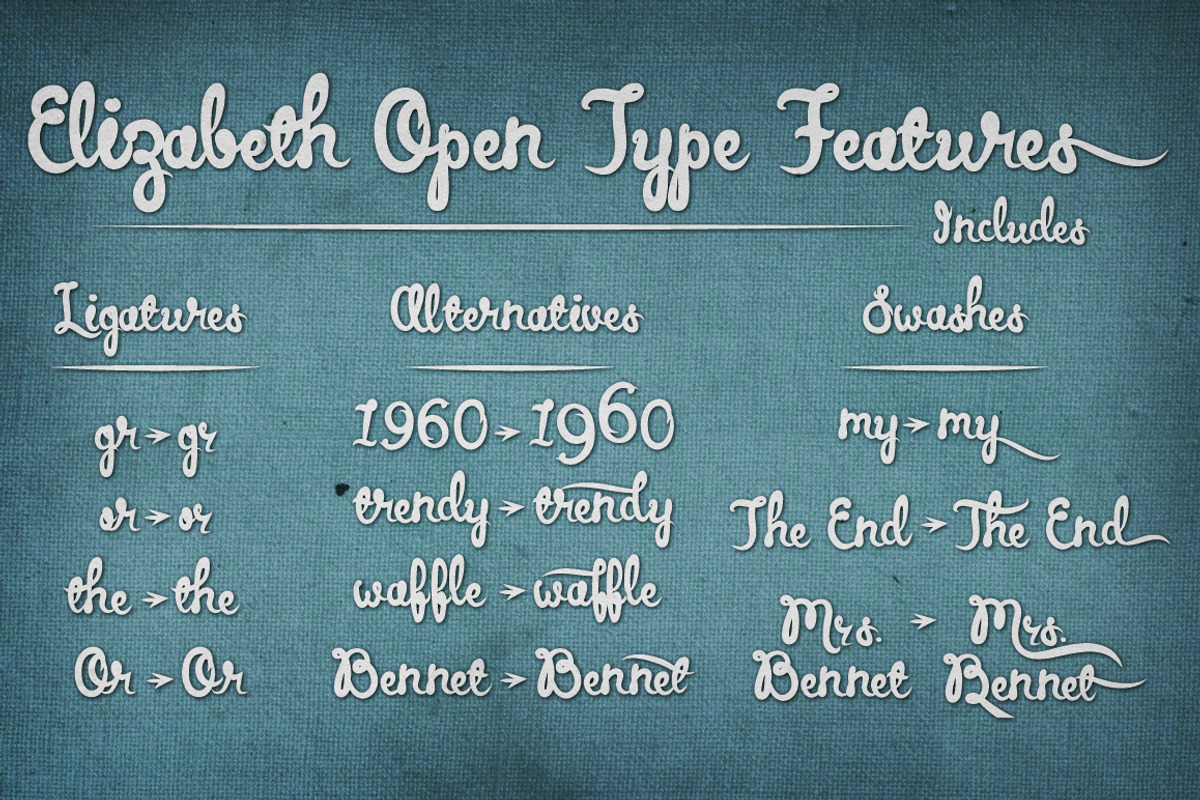 Elizabeth Open Type Features
Includes
Ligatures
gr → gr
or → or
the → the
Or → Or
Alternatives
1960 → 1960
trendy → trendy
waffle → waffle
Bennet → Bennet
Swashes
my → my
The End → The End
Mrs. → Mrs.
Bennet Bennet